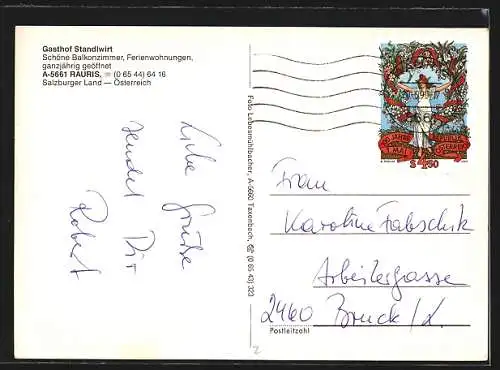 Gasthof Standlwirt
Schöne Balkonzimmer, Ferienwohnungen,
ganzjährig geöffnet
A-5661 RAURIS, ☎ (0 65 44) 64 16
Salzburger Land — Österreich
Liebe Grüße
sendet Dir
Robert
Foto Lebesmühlbacher, A-5660 Taxenbach, ☎ (0 65 43) 323
1. MAI
S 4.50
Frau
Karoline Fabschik
Arbeitergasse
2460 Bruck/L.
Postleitzahl
2